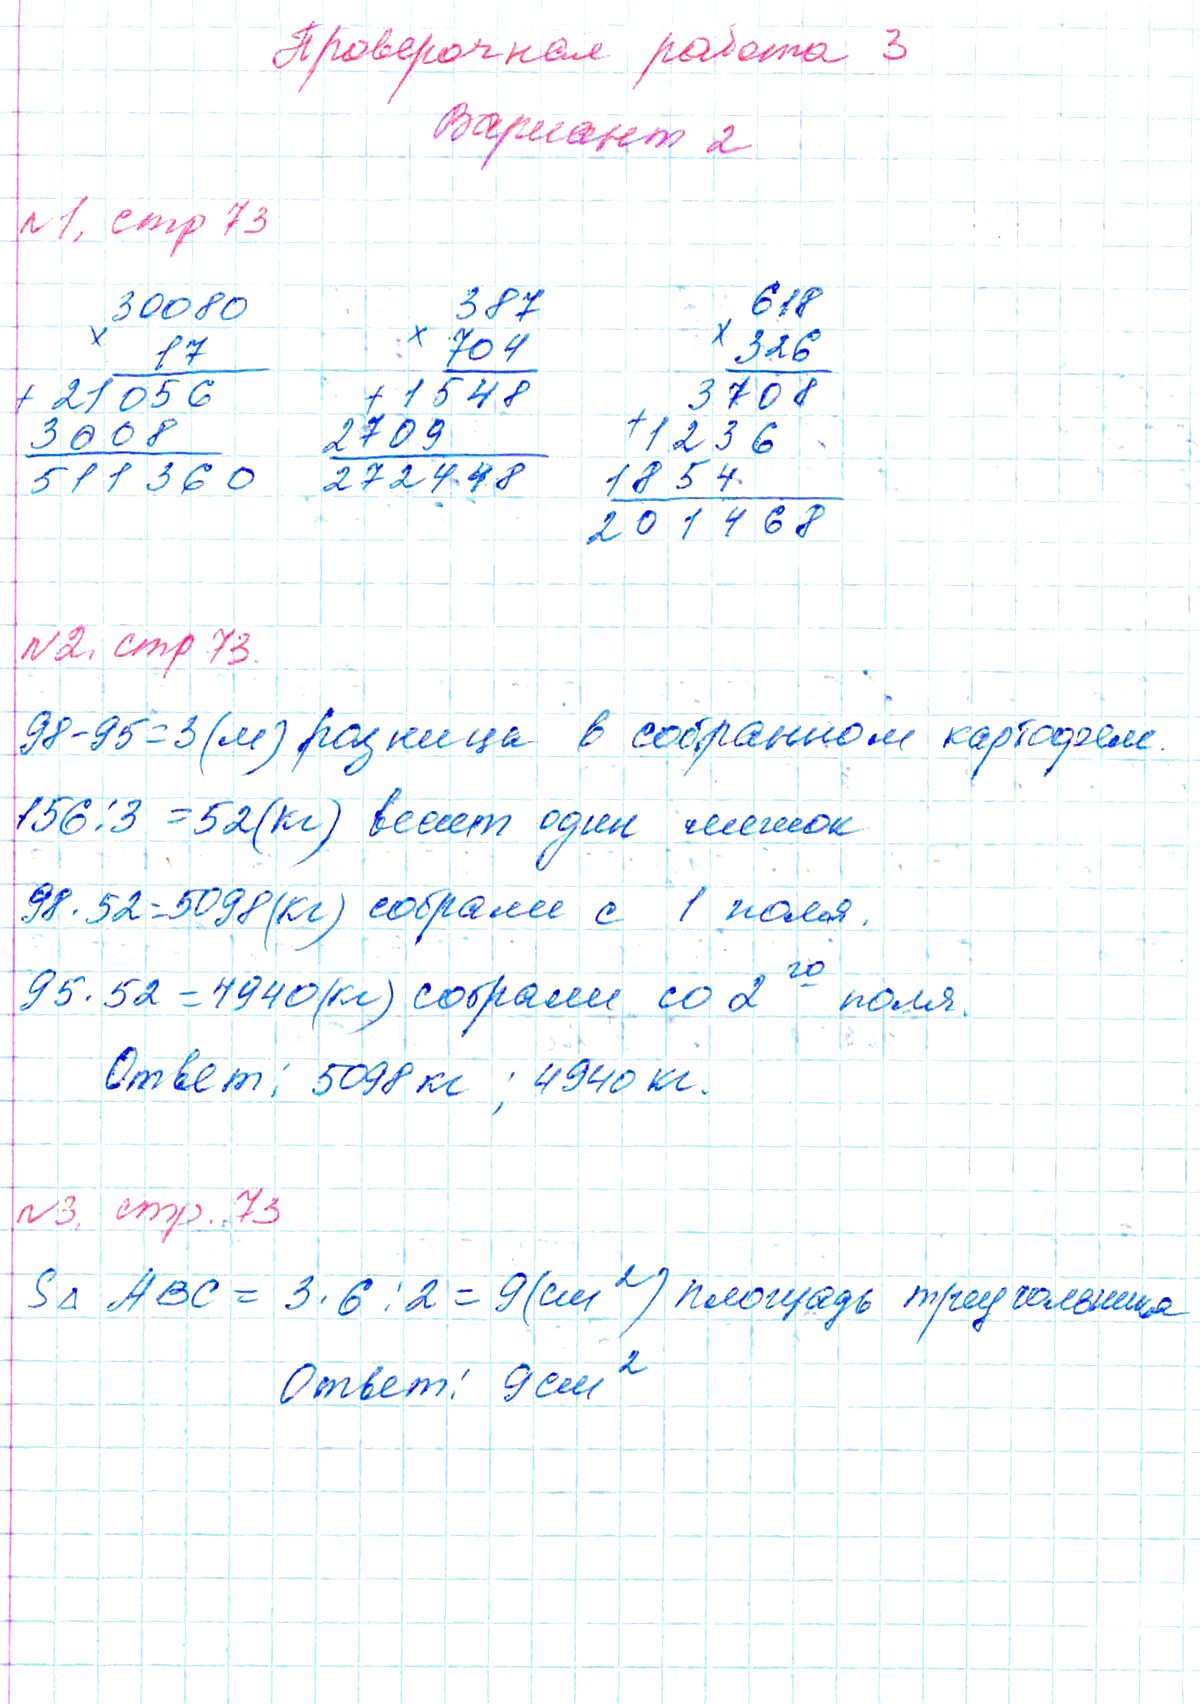 Проверочная работа 3
Вариант 2
№1, стр 73
30080 387 618
× 17 × 704 × 326
+ 21056 + 1548 3708
3008 2709 + 1236
511360 272448 1854
201468
№2, стр 73.
98-95=3(м) разница в собранном картофеле.
156:3 =52(кг) весит один мешок
98·52=5098(кг) собрали с 1 поля.
95·52=4940(кг) собрали со 2го поля.
Ответ: 5098 кг ; 4940 кг.
№3, стр. 73
S△ ABC = 3·6:2=9(см²) площадь треугольника
Ответ: 9см²